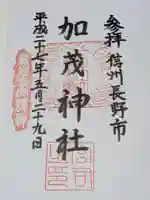 参拝
信州長野市
加茂神社
平成二十七年五月二十九日